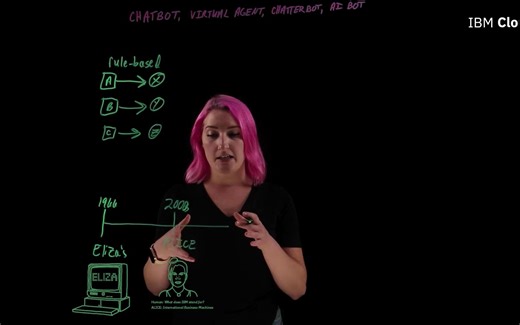 CHATBOT, VIRTUAL AGENT, CHATTERBOT, AI BOT
IBM Clo
rule-based
A X
B Y
C Z
1966 2008
Eliza's
ELIZA
Human: What does IBM stand for?
ALICE: International Business Machines